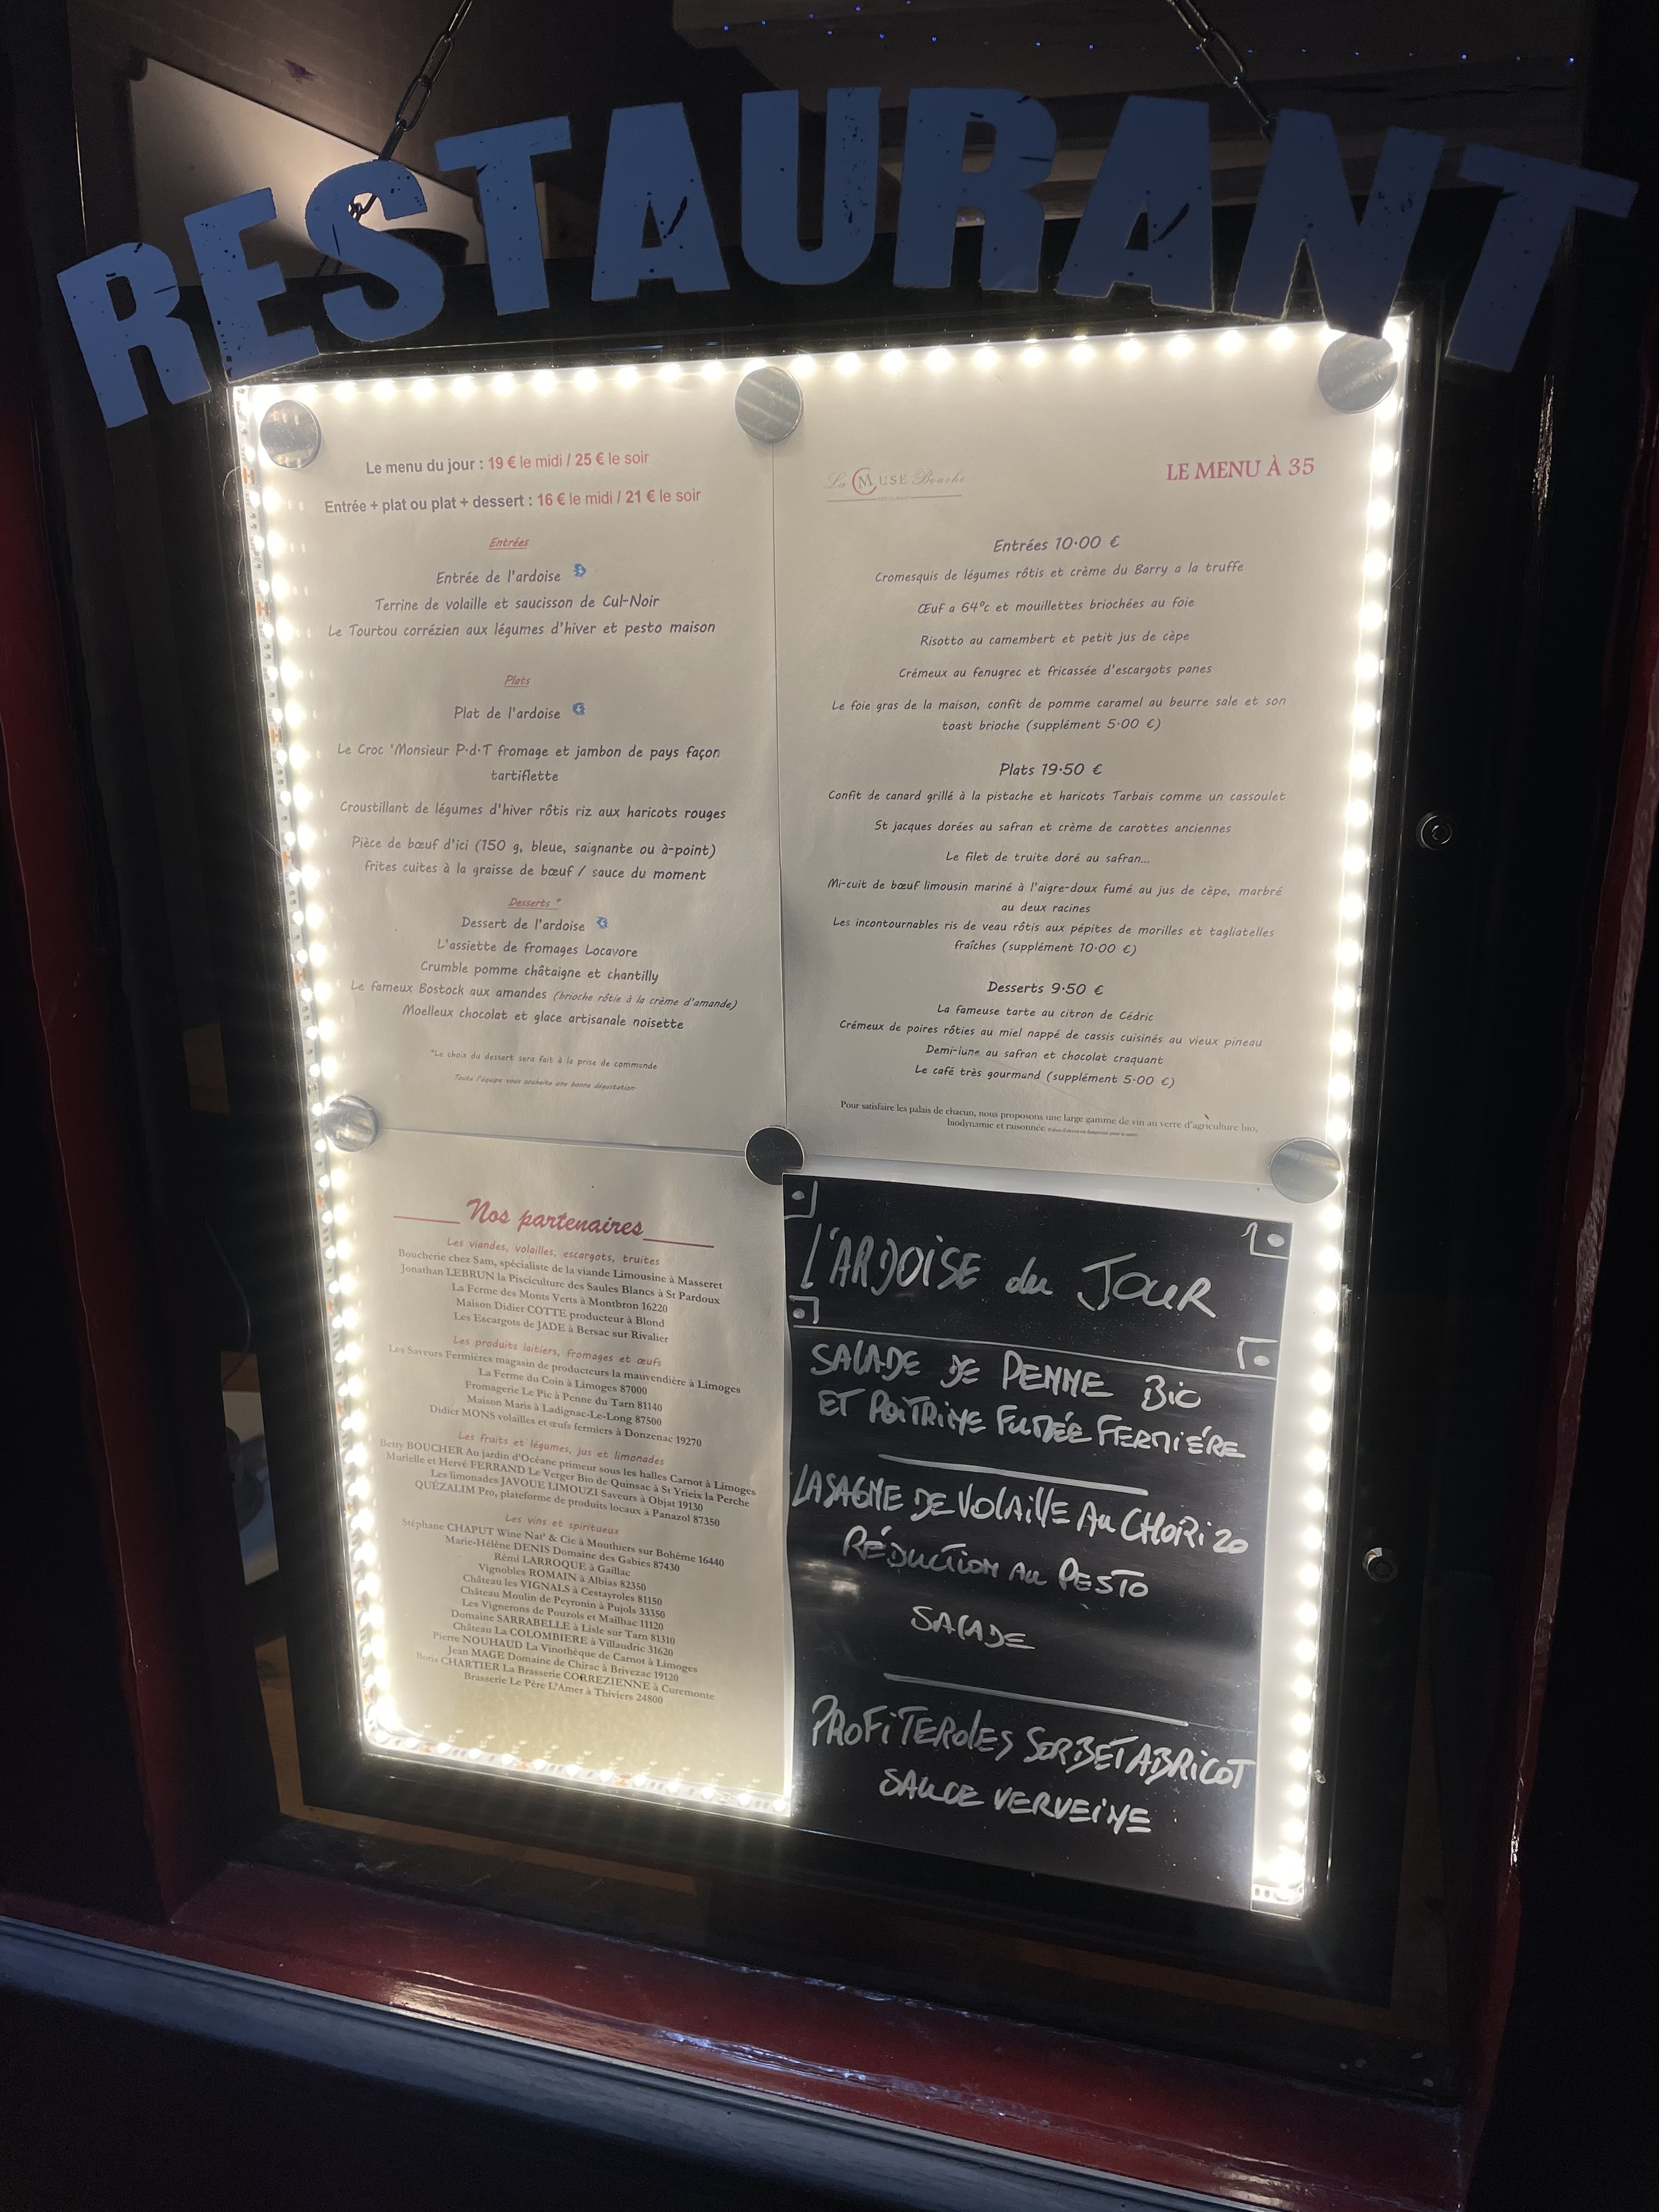 RESTAURANT
Le menu du jour : 19 € le midi / 25 € le soir
Entrée + plat ou plat + dessert : 16 € le midi / 21 € le soir
Entrées
Entrée de l'ardoise
Terrine de volaille et saucisson de Cul-Noir
Le Tourtou corrézien aux légumes d'hiver et pesto maison
Plats
Plat de l'ardoise
Le Croc 'Monsieur P·d·T fromage et jambon de pays façon
tartiflette
Croustillant de légumes d'hiver rôtis riz aux haricots rouges
Pièce de bœuf d'ici (150 g, bleue, saignante ou à-point)
frites cuites à la graisse de bœuf / sauce du moment
Desserts *
Dessert de l'ardoise
L'assiette de fromages Locavore
Crumble pomme châtaigne et chantilly
Le fameux Bostock aux amandes (brioche rôtie à la crème d'amande)
Moelleux chocolat et glace artisanale noisette
*Le choix du dessert sera fait à la prise de commande
Toute l'équipe vous souhaite une bonne dégustation·
La MUSE Bouche
LE MENU À 35
Entrées 10·00 €
Cromesquis de légumes rôtis et crème du Barry a la truffe
Œuf a 64°c et mouillettes briochées au foie
Risotto au camembert et petit jus de cèpe
Crémeux au fenugrec et fricassée d'escargots panes
Le foie gras de la maison, confit de pomme caramel au beurre sale et son
toast brioche (supplément 5·00 €)
Plats 19·50 €
Confit de canard grillé à la pistache et haricots Tarbais comme un cassoulet
St jacques dorées au safran et crème de carottes anciennes
Le filet de truite doré au safran...
Mi-cuit de bœuf limousin mariné à l'aigre-doux fumé au jus de cèpe, marbré
au deux racines
Les incontournables ris de veau rôtis aux pépites de morilles et tagliatelles
fraîches (supplément 10·00 €)
Desserts 9·50 €
La fameuse tarte au citron de Cédric
Crémeux de poires rôties au miel nappé de cassis cuisinés au vieux pineau
Demi-lune au safran et chocolat craquant
Le café très gourmand (supplément 5·00 €)
Pour satisfaire les palais de chacun, nous proposons une large gamme de vin au verre d'agriculture bio,
biodynamie et raisonnée
Nos partenaires
Les viandes, volailles, escargots, truites
Boucherie chez Sam, spécialiste de la viande Limousine à Masseret
Jonathan LEBRUN la Pisciculture des Saules Blancs à St Pardoux
La Ferme des Monts Verts à Montbron 16220
Maison Didier COTTE producteur à Blond
Les Escargots de JADE à Bersac sur Rivalier
Les produits laitiers, fromages et œufs
Les Saveurs Fermières magasin de producteurs la mauvendière à Limoges
La Ferme du Coin à Limoges 87000
Fromagerie Le Pic à Penne du Tarn 81140
Maison Maris à Ladignac-Le-Long 87500
Didier MONS volailles et œufs fermiers à Donzenac 19270
Les fruits et légumes, jus et limonades
Betty BOUCHER Au jardin d'Océane primeur sous les halles Carnot à Limoges
Murielle et Hervé FERRAND Le Verger Bio de Quinsac à St Yrieix la Perche
Les limonades JAVOUE LIMOUZI Saveurs à Objat 19130
QUÉZALIM Pro, plateforme de produits locaux à Panazol 87350
Les vins et spiritueux
Stéphane CHAPUT Wine Nat' & Cie à Mouthiers sur Bohême 16440
Marie-Hélène DENIS Domaine des Gabies 87430
Rémi LARROQUE à Gaillac
Vignobles ROMAIN à Albias 82350
Château les VIGNALS à Cestayroles 81150
Château Moulin de Peyronin à Pujols 33350
Les Vignerons de Pouzols et Mailhac 11120
Domaine SARRABELLE à Lisle sur Tarn 81310
Château La COLOMBIERE à Villaudric 31620
Pierre NOUHAUD La Vinothèque de Carnot à Limoges
Jean MAGE Domaine de Chirac à Brivezac 19120
Boris CHARTIER La Brasserie CORREZIENNE à Curemonte
Brasserie Le Père L'Amer à Thiviers 24800
L'ARDOISE du JOUR
SALADE DE PENNE BiO
ET POITRINE FUMÉE FERMIÈRE
LASAGNE DE VOLAILLE AU CHORIZO
RÉDUCTION AU PESTO
SALADE
PROFITEROLES SORBET ABRICOT
SAUCE VERVEINE